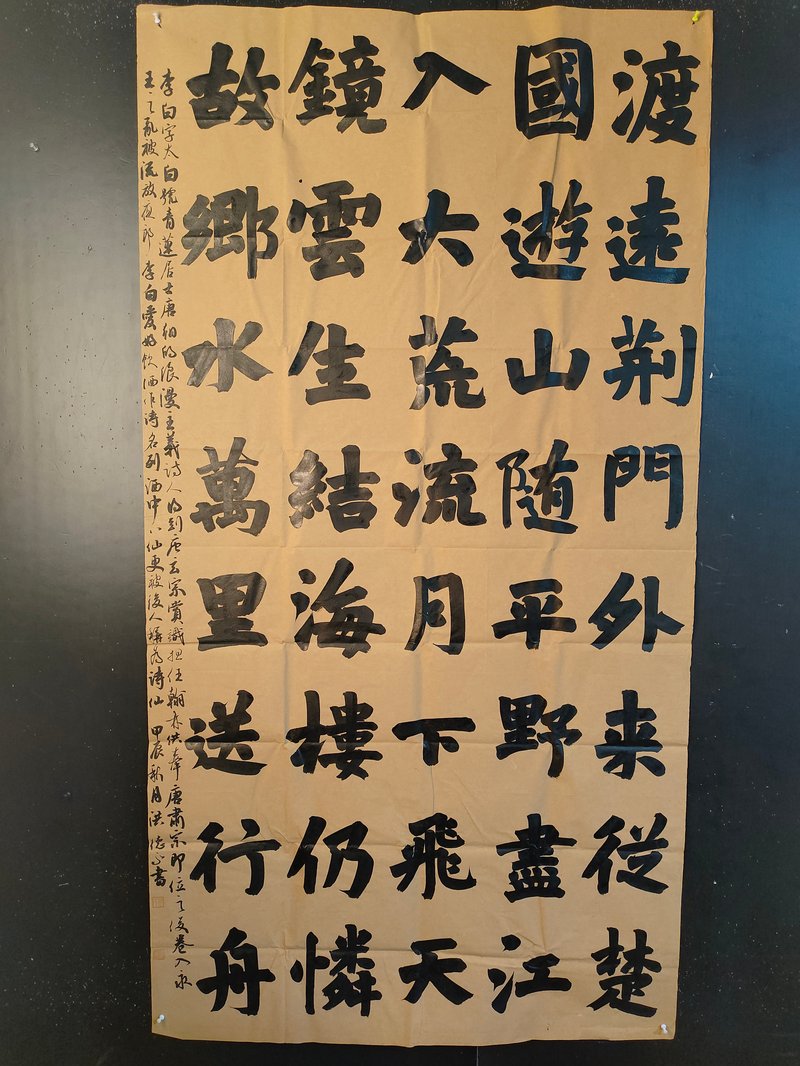 渡遠荆門外来從楚
國遊山随平野盡江
入大荒流月下飛天
鏡雲生結海樓仍憐
故鄉水萬里送行舟
李白字太白號青蓮居士唐朝的浪漫主義詩人得到唐玄宗賞識担任翰林供奉唐肅宗即位之後卷入永
王之亂被流放夜郎李白愛好飲酒作詩名列酒中八仙更被後人稱為詩仙 甲辰秋月洪德書